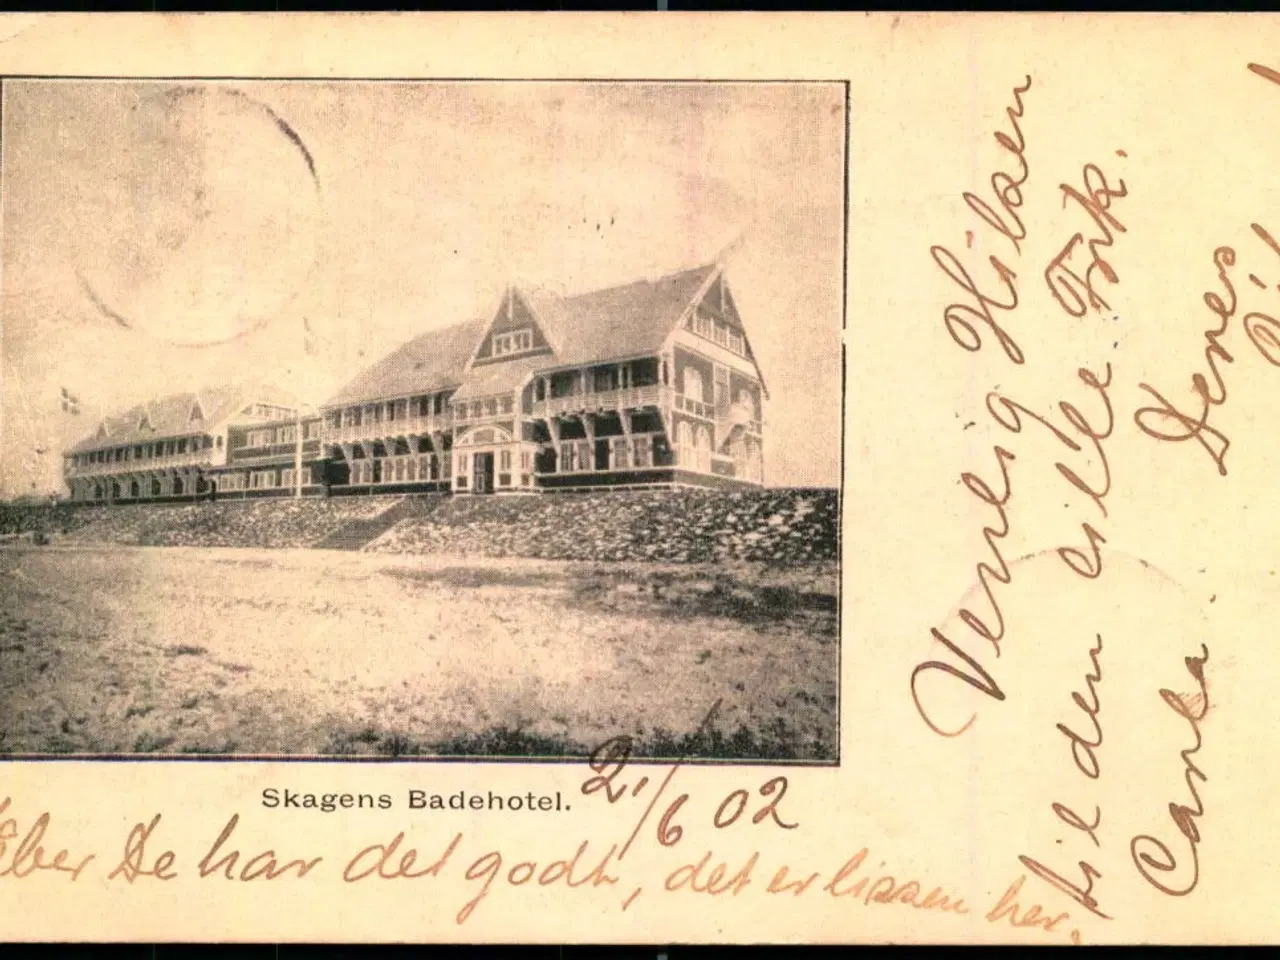 Skagens Badehotel.
21/6 02
Håber De har det godt, det er lissen her.
Venlig Hilsen
til den lille Frk.
Carla. Deres